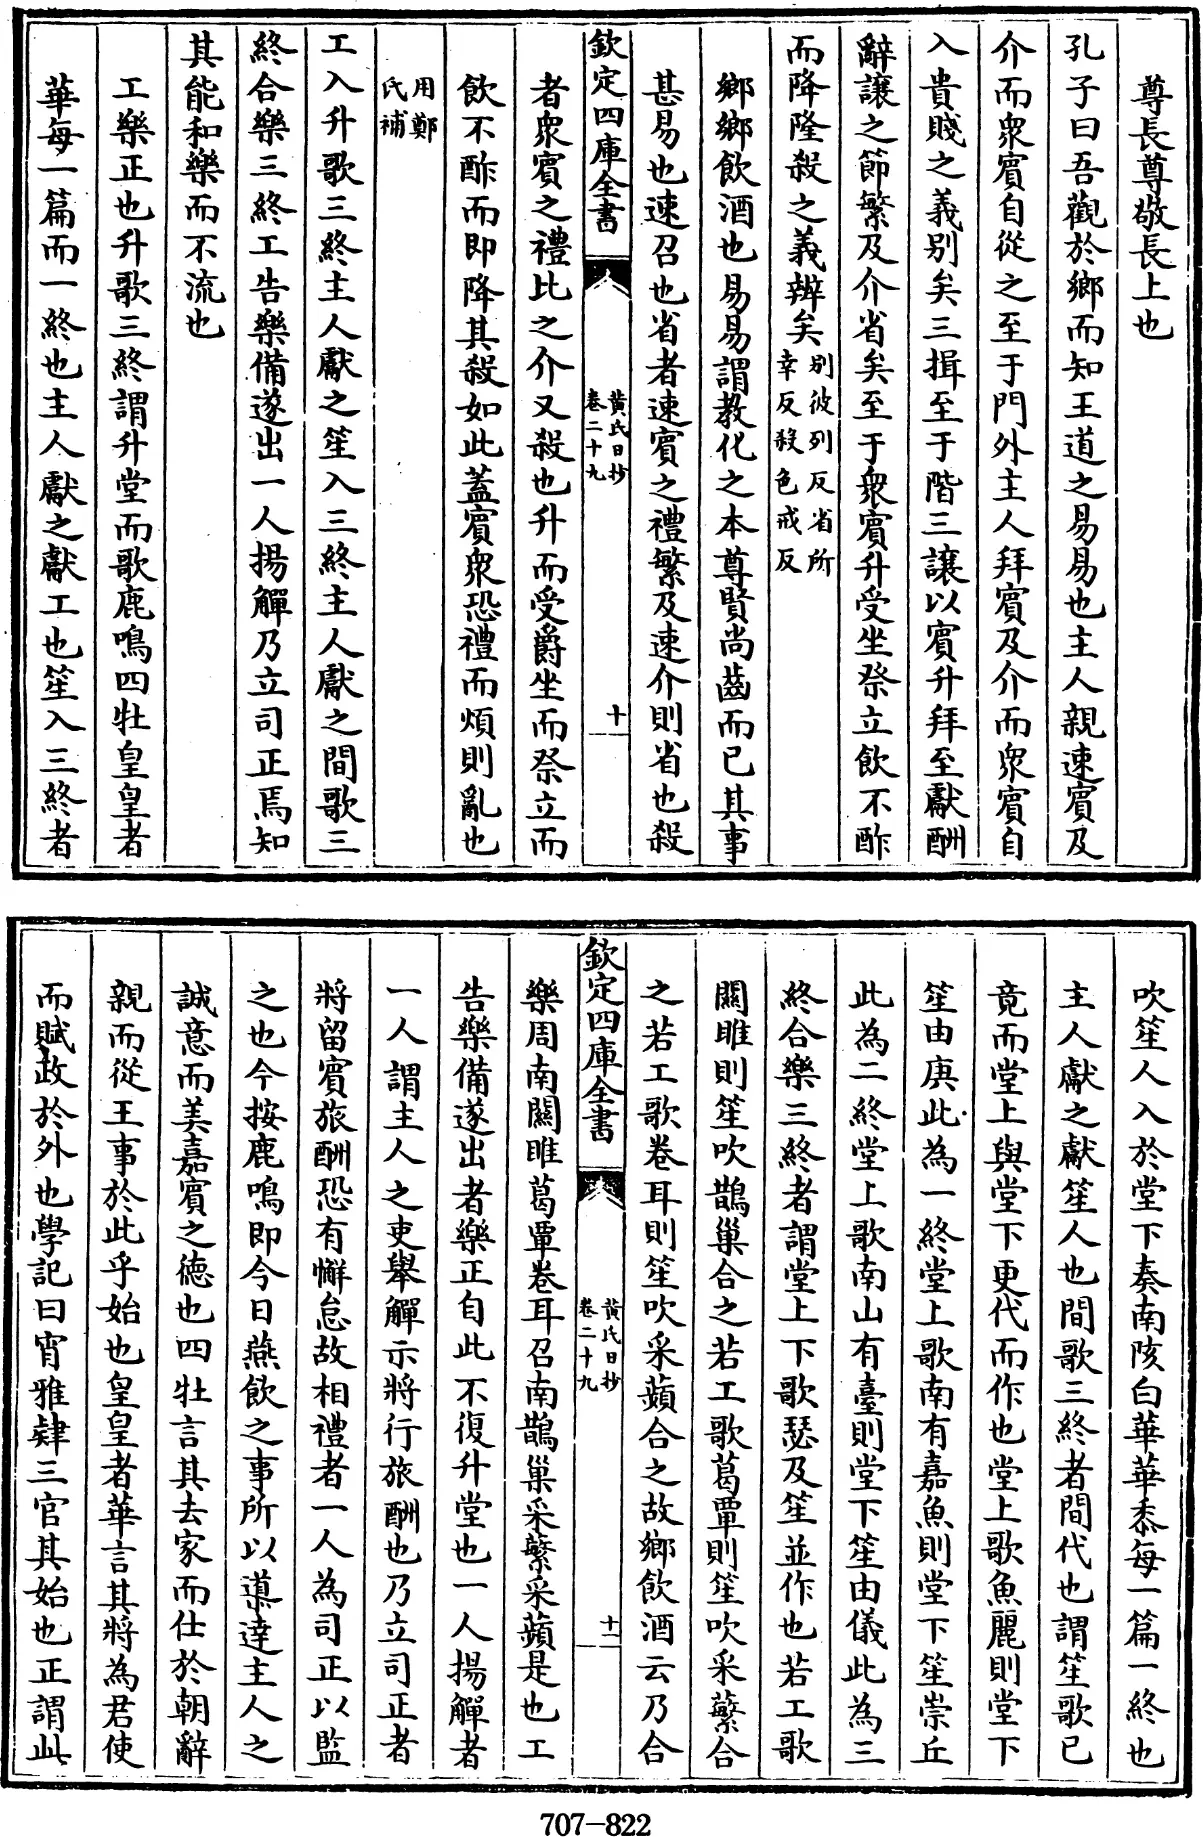 尊長尊敬長上也
孔子曰吾觀於鄉而知王道之易易也主人親速賓及
介而衆賓自從之至于門外主人拜賓及介而衆賓自
入貴賤之義别矣三揖至于階三讓以賓升拜至獻酬
辭讓之節繁及介省矣至于衆賓升受坐祭立飲不酢
而降隆殺之義辨矣别彼列反省所幸反殺色戒反
鄉鄉飲酒也易易謂教化之本尊賢尚齒而已其事
甚易也速召也省者速賓之禮繁及速介則省也殺
欽定四庫全書 黄氏日抄卷二十九 十
者衆賓之禮比之介又殺也升而受爵坐而祭立而
飲不酢而即降其殺如此蓋賓衆恐禮而煩則亂也
用鄭氏補
工入升歌三終主人獻之笙入三終主人獻之間歌三
終合樂三終工告樂備遂出一人揚觶乃立司正焉知
其能和樂而不流也
工樂正也升歌三終謂升堂而歌鹿鳴四牡皇皇者
華每一篇而一終也主人獻之獻工也笙入三終者
吹笙人入於堂下奏南陔白華華黍每一篇一終也
主人獻之獻笙人也間歌三終者間代也謂笙歌已
竟而堂上與堂下更代而作也堂上歌魚麗則堂下
笙由庚此為一終堂上歌南有嘉魚則堂下笙崇丘
此為二終堂上歌南山有臺則堂下笙由儀此為三
終合樂三終者謂堂上下歌瑟及笙並作也若工歌
關雎則笙吹鵲巢合之若工歌葛覃則笙吹采蘩合
之若工歌卷耳則笙吹采蘋合之故鄉飲酒云乃合
欽定四庫全書 黄氏日抄卷二十九 十一
樂周南關雎葛覃卷耳召南鵲巢采蘩采蘋是也工
告樂備遂出者樂正自此不復升堂也一人揚觶者
一人謂主人之吏舉觶示將行旅酬也乃立司正者
將留賓旅酬恐有懈怠故相禮者一人為司正以監
之也今按鹿鳴即今日燕飲之事所以導達主人之
誠意而美嘉賓之徳也四牡言其去家而仕於朝辭
親而從王事於此乎始也皇皇者華言其將為君使
而賦政於外也學記曰宵雅肄三官其始也正謂此
707-822